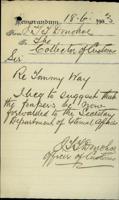 Memorandum 18-6-1903
From J. T. T. Donohoe
To The
Collector of Customs
Sir
Re Tommy Way
I beg to suggest that
the papers be now
forwarded to the Secretary
Department of External Affairs
Officer of Customs